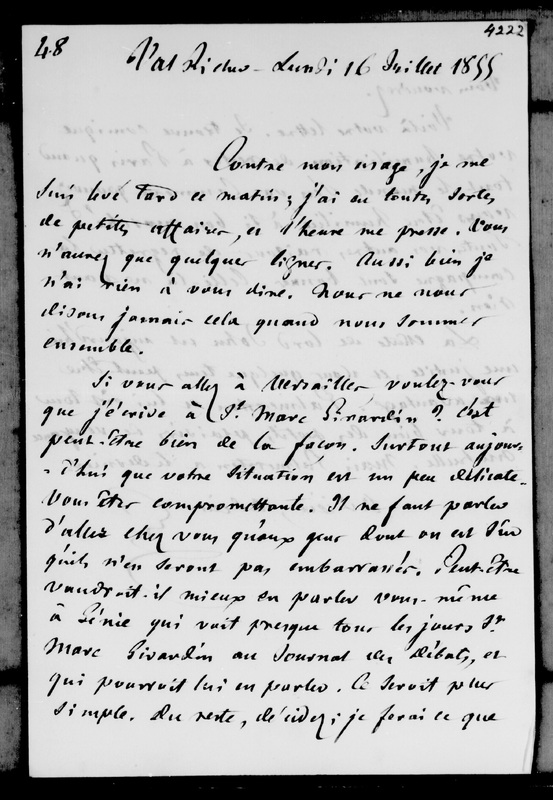 48
4222
Val Richer - Lundi 16 Juillet 1855
Contre mon usage, je me
suis levé tard ce matin ; j'ai eu toutes sortes
de petites affaires, et l'heure me presse. Vous
n'aurez que quelques lignes. Aussi bien je
n'ai rien à vous dire. Nous ne nous
disons jamais cela quand nous sommes
ensemble.
Si vous allez à Versailles voulez-vous
que j'écrive à St Marc Girardin ? C'est
peut-être bien de la façon. Surtout aujour-
-d'hui que votre situation est un peu délicate.
Vous êtes compromettante. Il ne faut parler
d'aller chez vous qu'aux gens dont on est sûr
qu'ils n'en seront pas embarrassés. Peut-être
vaudroit-il mieux en parler vous-même
à Génie qui voit presque tous les jours St
Marc Girardin au Journal des Débats, et
qui pourroit lui en parler. Ce seroit plus
simple. Du reste, décidez ; je ferai ce que